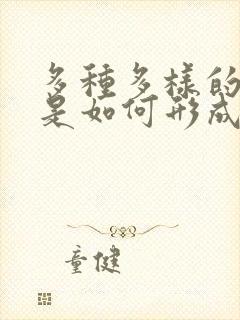 多種多樣的
是如何形成
童健